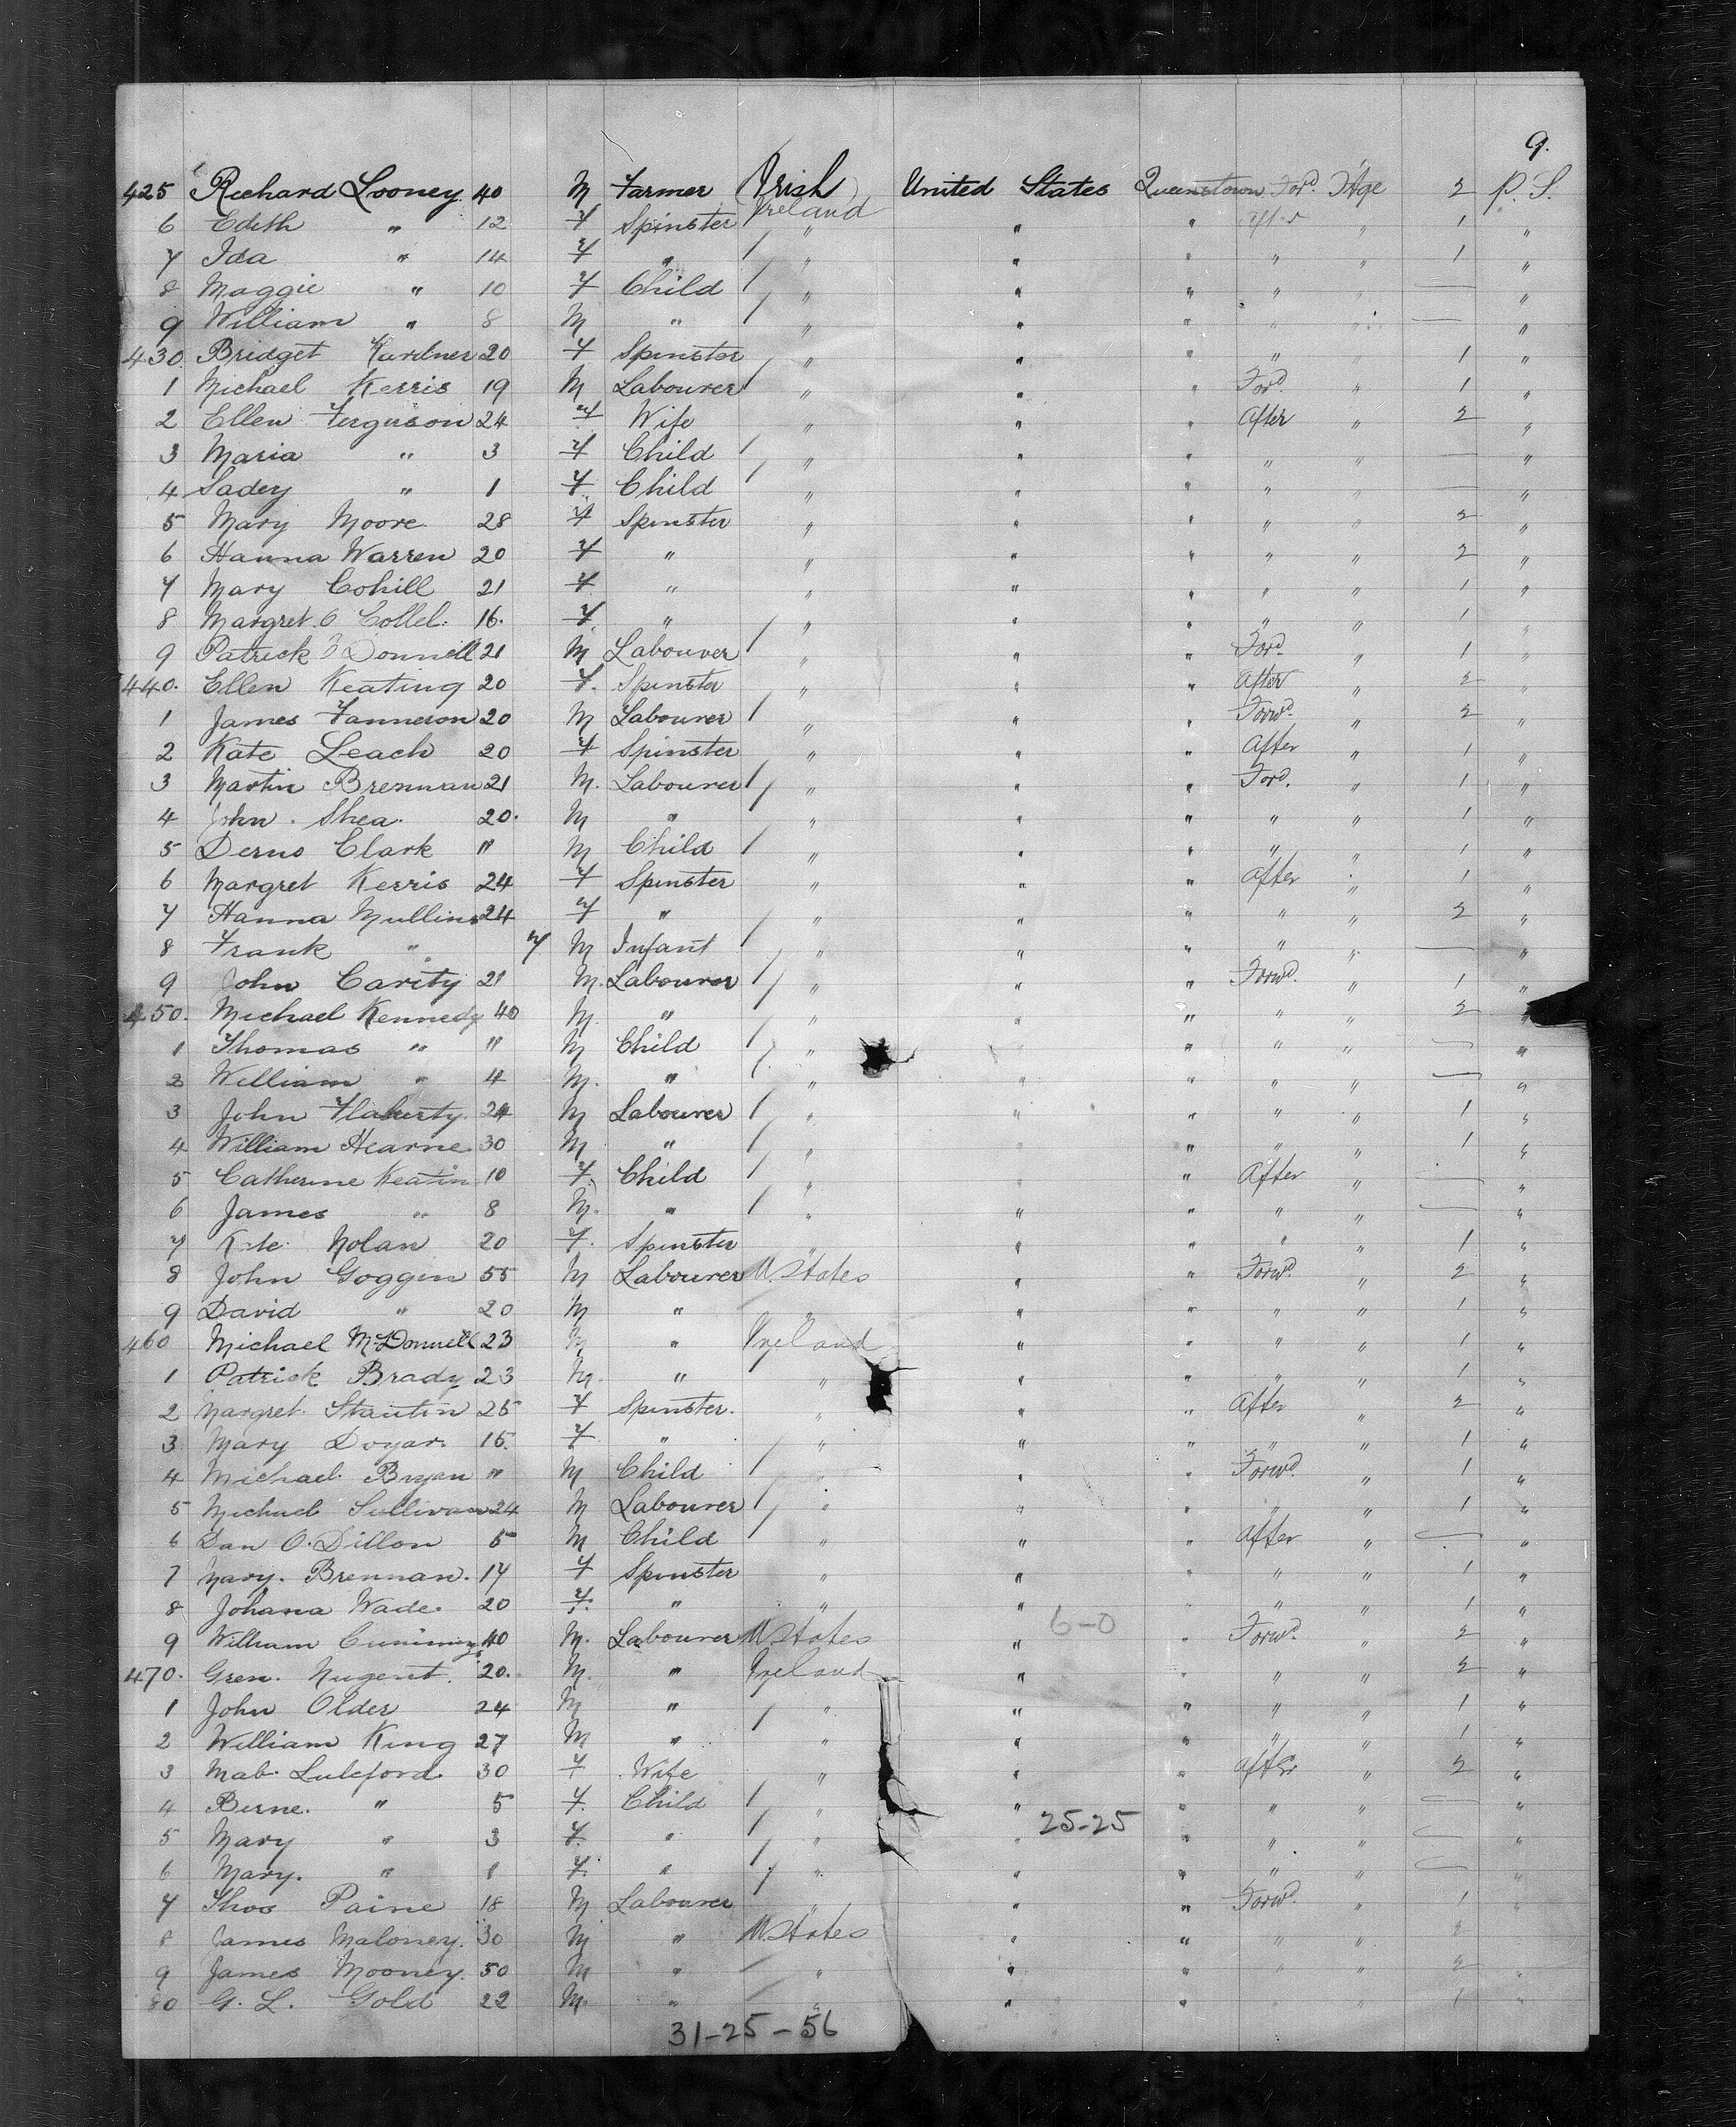 9.
425 Richard Looney 40 M Farmer Irish United States Queenstown Ford. Stge 2 P. S.
6 Edith " 12 F Spinster Ireland " " " After " 1 "
7 Ida " 14 F " / " " " " " 1 "
8 Maggie " 10 F Child / " " " " " — "
9 William " 8 M " / " " " " " — "
430. Bridget Kardner 20 F Spinster / " " " " " 1 "
1 Michael Kerris 19 M Labourer / " " " Ford. " 1 "
2 Ellen Ferguson 24 F Wife " " " After " 2 "
3 Maria " 3 F Child / " " " " " — "
4 Sadey " 1 F Child / " " " " " — "
5 Mary Moore 28 F Spinster " " " " " 2 "
6 Hanna Warren 20 F " " " " " " 2 "
7 Mary Cohill 21 F " " " " " " 1 "
8 Margret. O Collel. 16. F. " " " " " " 1 "
9 Patrick O'Donnell 21 M Labourer / " " " Ford. " 1 "
440. Ellen Keating 20 F. Spinster / " " " After " 2 "
1 James Fanneson 20 M Labourer / " " " Forwd. " 2 "
2 Kate Leach 20 F Spinster " " " After " 1 "
3 Martin Brennan 21 M. Labourer / " " " Ford. " 1 "
4 John. Shea. 20. M " / " " " " " 1 "
5 Derno Clark 11 M Child / " " " " " 1 "
6 Margret Kerris 24 F Spinster " " " After " 1 "
7 Hanna Mullins 24 F " " " " " " 2 "
8 Frank " 7 M Infant / " " " " " — "
9 John Carity 21 M. Labourer / " " " Forwd. " 1 "
450. Michael Kennedy 40 M. " / " " " " " 2 "
1 Thomas " 11 M Child / " " " " " — "
2 William " 4 M. " / " " " " " — "
3 John Flaherty. 24 M Labourer / " " " " " 1 "
4 William Hearne. 30 M " / " " " " " 1 "
5 Catherine Keatin 10 F. Child / " " " After " — "
6 James " 8 M. " / " " " " " — "
7 Kate Nolan 20 F. Spinster " " " " " 1 "
8 John Goggin 55 M Labourer U. States " " Forwd. " 2 "
9 David " 20 M " " " " " " 1 "
460 Michael McDonnell 23 M " Ireland " " " " 1 "
1 Patrick Brady 23 M. " " " " " " 1 "
2 Margret. Stantin 25 F Spinster. " " " After " 2 "
3 Mary Doyar 15. F " " " " " " 1 "
4 Michael. Bryan 11 M Child / " " " Forwd. " 1 "
5 Michael Sullivan 24 M Labourer / " " " " " 1 "
6 Dan O. Dillon 5 M Child / " " " After " — "
7 Mary. Brennan. 14 F Spinster " " " " " 1 "
8 Johana Wade. 20 F. " " " " " " 1 "
9 William Cummings 40 M. Labourer U States " 6-0 " Forwd. " 2 "
470. Gren. Nugent. 20. M. " Ireland " " " " 2 "
1 John Older 24 M " " " " " " 1 "
2 William King 27 M " / " " " " " 1 "
3 Mab. Luleford. 30 F Wife " " " After " 2 "
4 Berne. " 5 F. Child / " " " " " — "
5 Mary " 3 F. " / " " 25-25 " " " — "
6 Mary. " 1 F. " / " " " " " — "
7 Thos Paine 18 M Labourer / " " " Forwd. " 1 "
8 James Maloney. 30 M " U States " " " " 2 "
9 James Mooney. 50 M " " " " " " 2 "
80 G. L. Gold 22 M. " " " " " " 1 "
31-25-56